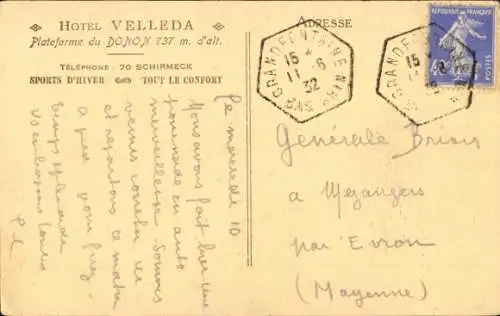 HOTEL VELLEDA
Plateforme du DONON 737 m. d'alt.
TÉLÉPHONE : 70 SCHIRMECK
SPORTS D'HIVER TOUT LE CONFORT
ADRESSE
GRANDFONTAINE
15 *
11 - 6
32
GRANDFONTAINE
15
POSTES
Générale
a Mezangers
par Evron
(Mayenne)
Le mercredi 10
Nous avons fait hier une
promenade en auto
merveilleuse. Sommes
venus coucher ici
et repartons ce matin
a pied pour
Temps splendide
Vs embrassons tous